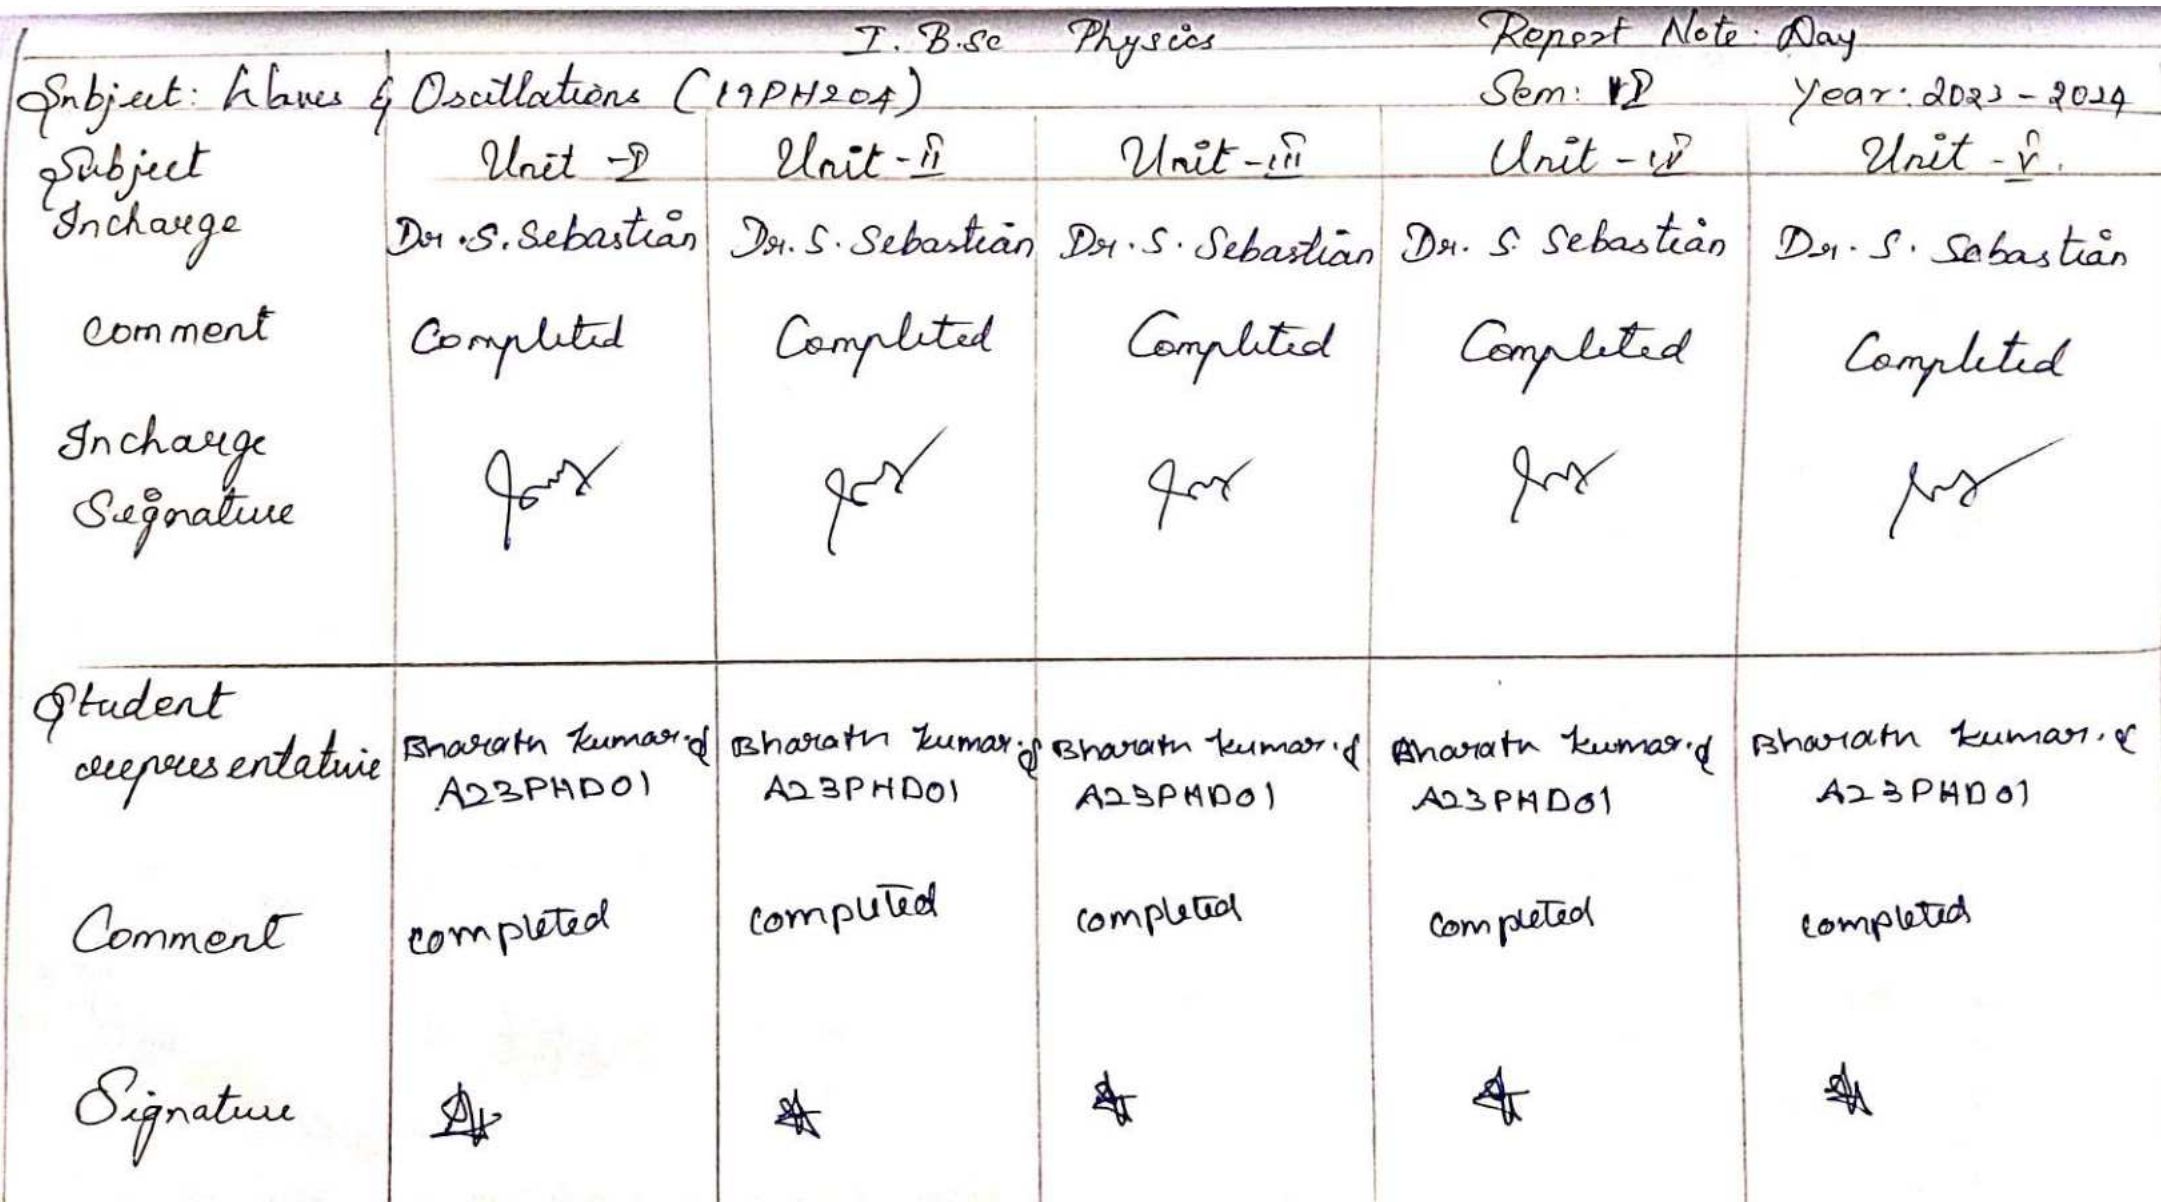 I. B.Sc Physics Report Note: Day
Subject: Waves & Oscillations (19PH204) Sem: II Year: 2023-2024
Subject Unit-I Unit-II Unit-III Unit-IV Unit-V.
Incharge Dr.S.Sebastian Dr.S.Sebastian Dr.S.Sebastian Dr.S.Sebastian Dr.S.Sebastian
Comment Completed Completed Completed Completed Completed
Incharge
Signature
Student
representative Bharath kumar.S Bharath kumar.S Bharath kumar.S Bharath kumar.S Bharath kumar.S
A23PHD01 A23PHD01 A23PHD01 A23PHD01 A23PHD01
Comment completed completed completed completed completed
Signature